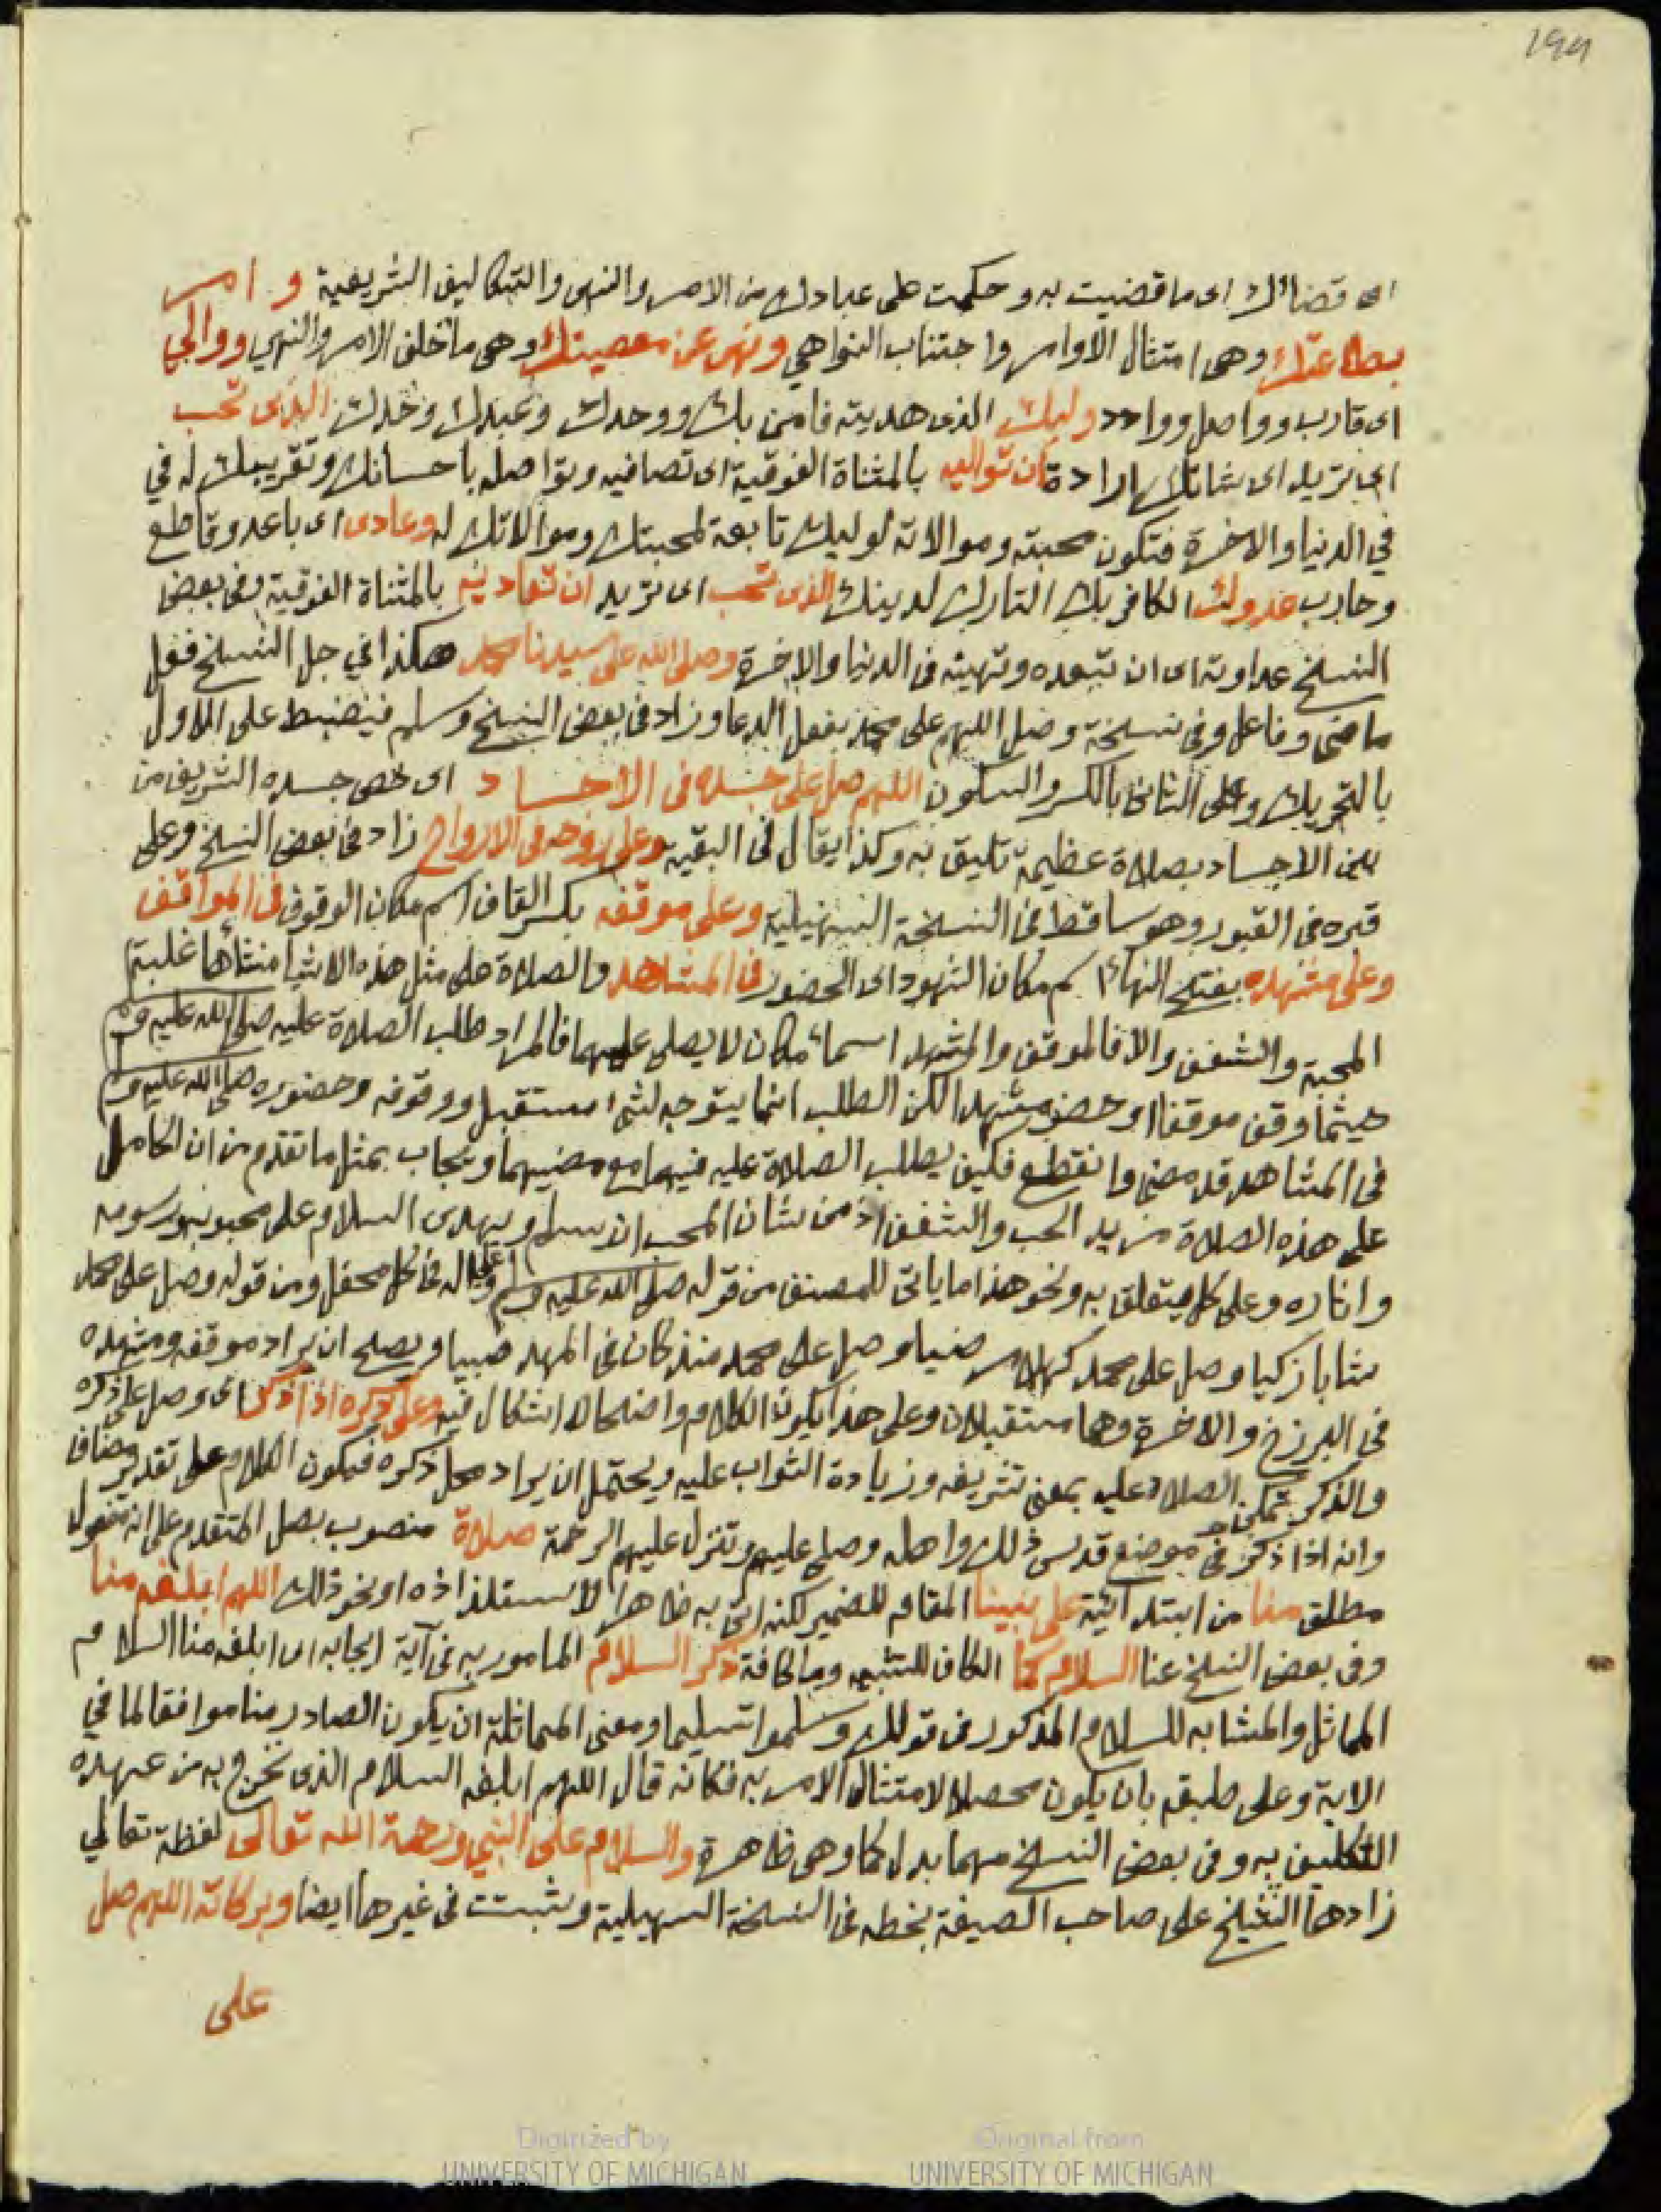 199
اى قضائك اى ما قضيت به وحكمت على عبادك من الامر والنهى والتكاليف الشريعية و امر
بطاعتك وهى امتثال الاوامر واجتناب النواهي ونهى عن معصيتك وهى ما خلف الامر والنهي ووالي
اى قارب وواصل ووادد وليك الذى هديته فامن بك ووحدك وعبدك وخدك الذى تحب
اى تريد اى شانك ارادة ان تواليه بالمثناة الفوقية اى تصافيه وتواصله باحسانك وتقريبك له في
في الدنيا والاخرة فتكون محبته وموالاته لوليك تابعة لمحبتك وموالاتك له وعادى اى باعد وقاطع
وحارب عدوك الكافر بك التارك لدينك الذى تحب اى تريد ان تعاديه بالمثناة الفوقية وفى بعض
النسخ عداوته اى ان تبعده وتهينه فى الدنيا والاخرة وصلى الله على سيدنا محمد هكذا في جل النسخ فعل
ماضى وفاعل وفى نسخة وصل اللهم على محمد بفعل الدعا وزاد فى بعض النسخ وسلم فيضبط على الاول
بالتحريك وعلى الثانى بالكسر والسكون اللهم صل على جسده فى الاجساد اى خص جسده الشريف من
بين الاجساد بصلاة عظيمة تليق به وكذا يقال فى البقية وعلى روحه فى الارواح زاد فى بعض النسخ وعلى
قبره فى القبور وهو ساقط فى النسخة السهيلية وعلى موقفه بكسر القاف اسم مكان الوقوف فى المواقف
وعلى مشهده بفتح الهاء اسم مكان الشهود اى الحضور فى المشاهد والصلاة على مثل هذه الاشيا منشأها غلبة
المحبة والشغف والا فالموقف والمشهد اسماء مكان لا يصلى عليهما فالمراد طلب الصلاة عليه صلى الله عليه وسلم
حيثما وقف موقفا او حضر مشهدا لكن الطلب انما يتوجه لشى مستقبل ووقوفه وحضوره صلى الله عليه وسلم
فى المشاهد قد مضى وانقطع فكيف يطلب الصلاة عليه فيهما مع مضيهما ويجاب بمثل ما تقدم من ان الحامل
على هذه الصلاة مزيد الحب والشغف اذ من شان المحب ان يسلم ويهدى السلام على محبوبه ورسومه
واثاره وعلى كل متعلق به ونحو هذا ما ياتى للمصنف من قوله صلى الله عليه وسلم وعلى اله فى كل محفل ومن قوله وصل على محمد
شابا زكيا وصل على محمد كهلا مرضيا وصل على محمد منذ كان فى المهد صبيا ويصلح ان يراد موقفه ومشهده
فى البرزخ والاخرة وهما مستقبلان وعلى هذا يكون الكلام واضحا لا اشكال فيه وعلى ذكره اذا ذكر اى وصل على ذكره
والذكر تمكن الصلاة عليه بمعنى تشريفه وزيادة الثواب عليه ويحتمل ان يراد محل ذكره فيكون الكلام على تقدير مضاف
وانه اذا ذكر فى موضع قدس ذلك واهله وصلى عليهم وتنزل عليهم الرحمة صلاة منصوب بصل المتقدم على انه مفعول
مطلق منا من ابتدائية على نبينا المقام للضمير لكنه اتى به ظاهرا لاستلذاذه او نحو ذلك اللهم ابلغه منا
وفى بعض النسخ عنا السلام كما الكاف للتشبيه وما كافة ذكر السلام المامور به فى آية ايجابه اى ابلغه منا السلام
المماثل والمشابه للسلام المذكور فى قولك وسلموا تسليما ومعنى المماثلة ان يكون الصادر منا موافقا لما في
الاية وعلى طبقه بان يكون محصلا لامتثال الامر به فكانه قال اللهم ابلغه السلام الذى نخرج به من عهدة
التكليف به وفى بعض النسخ مهما بدل كما وهى ظاهرة والسلام على النبي ورحمة الله تعالى لفظة تعالي
زادها الشيخ على صاحب الصيغة بخطه فى النسخة السهيلية وثبتت فى غيرها ايضا وبركاته اللهم صل
على
Digitized by
UNIVERSITY OF MICHIGAN
Original from
UNIVERSITY OF MICHIGAN